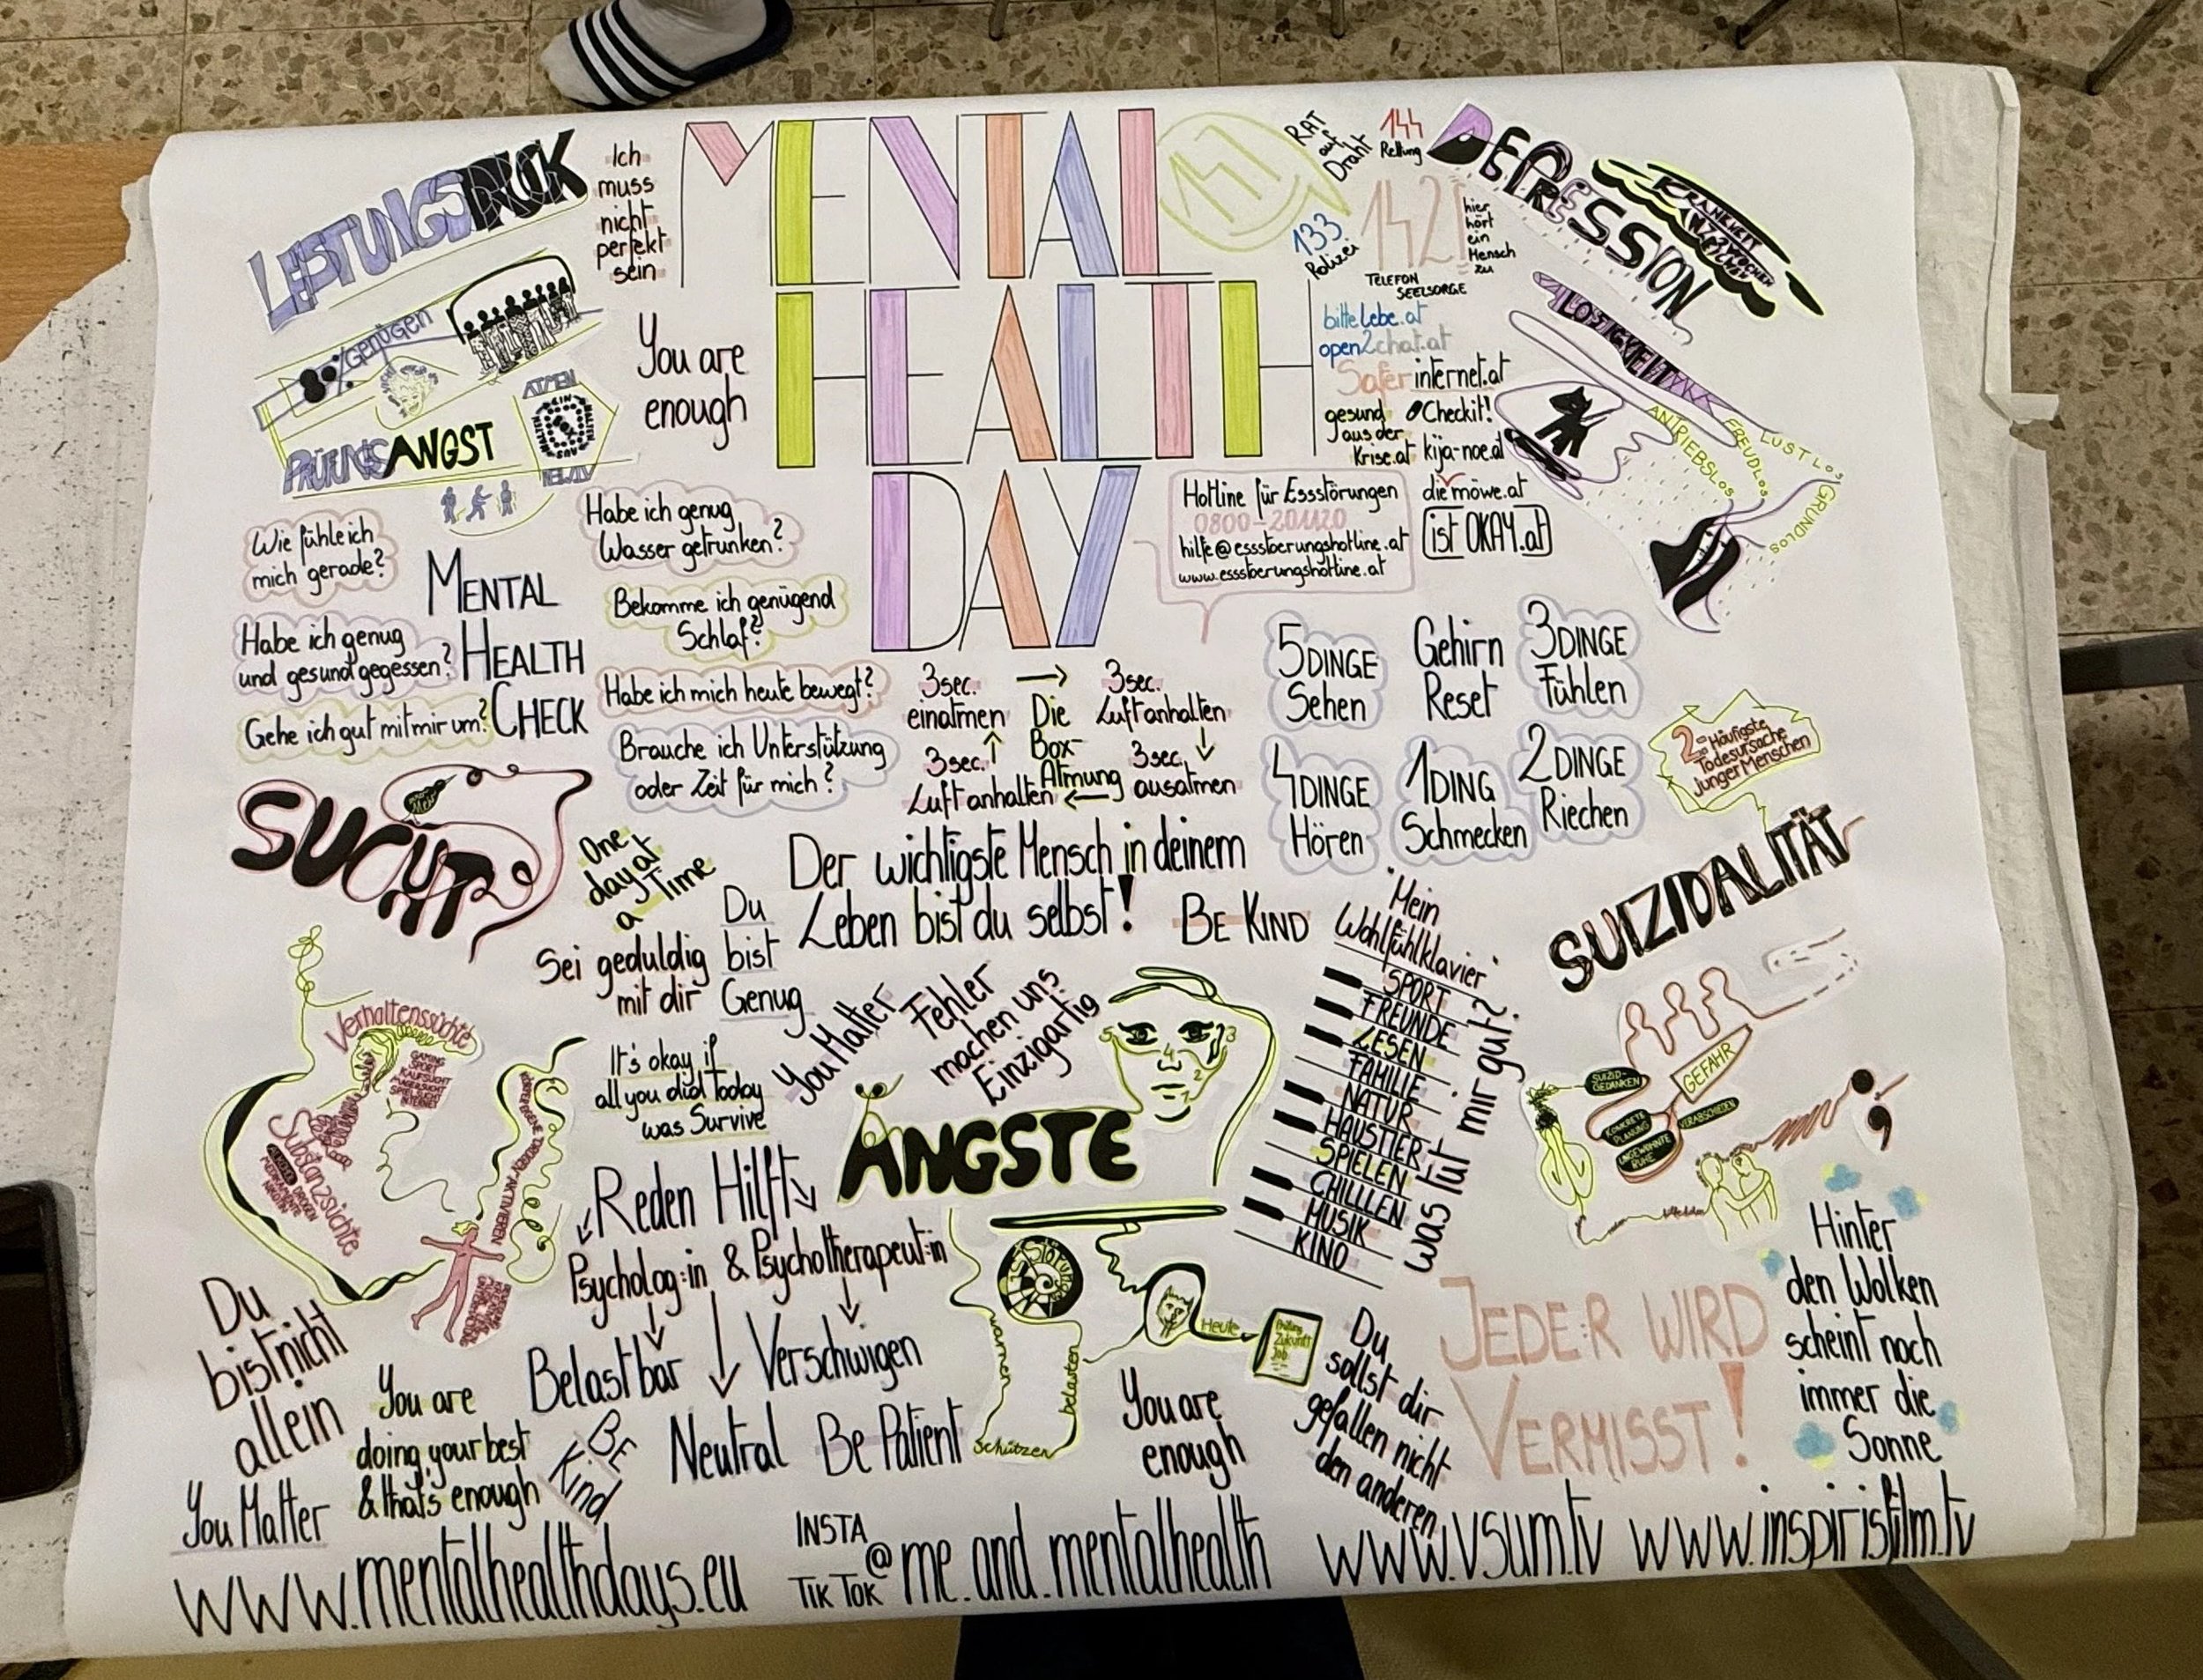 MENTAL
HEALTH
DAY
LEISTUNGSDRUCK
Ich
muss
nicht
perfekt
sein
genügen
PRÜFUNGSANGST
ATMEN
You are
enough
147
RAT
auf
Draht
144
Rettung
133
Polizei
142
hier
hört
ein
Mensch
zu
TELEFON
SEELSORGE
bittelebe.at
open2chat.at
Saferinternet.at
gesund
aus der
Krise.at
Checkit!
kija-noe.at
die möwe.at
ist OKAY.at
Hotline für Essstörungen
0800-201120
hilfe@essstoerungshotline.at
www.essstoerungshotline.at
DEPRESSION
KRANKHEIT
LOSIGKEIT
ANTRIEBSLOS
FREUDLOS
LUSTLOS
GRUNDLOS
MENTAL
HEALTH
CHECK
Wie fühle ich
mich gerade?
Habe ich genug
und gesund gegessen?
Gehe ich gut mit mir um?
Habe ich genug
Wasser getrunken?
Bekomme ich genügend
Schlaf?
Habe ich mich heute bewegt?
Brauche ich Unterstützung
oder Zeit für mich?
3sec.
einatmen
3sec.
Luft anhalten
Die
Box-
Atmung
3sec.
ausatmen
3sec.
Luft anhalten
Gehirn
Reset
5 DINGE
Sehen
4 DINGE
Hören
3 DINGE
Fühlen
2 DINGE
Riechen
1 DING
Schmecken
2-Häufigste
Todesursache
junger Menschen
SUIZIDALITÄT
GEFAHR
SUIZID-
GEDANKEN
KONKRETE
PLANUNG
VERABSCHIEDEN
UNGEWOHNTE
RUHE
SUCHT
Verhaltenssüchte
GAMING
SPORT
KAUFSUCHT
MAGERSUCHT
SPIELSUCHT
INTERNET
Substanzsüchte
One
day at
a Time
Sei geduldig
mit dir
Du
bist
Genug
Der wichtigste Mensch in deinem
Leben bist du selbst!
BE KIND
It's okay if
all you did today
was Survive
You Matter
Fehler
machen uns
Einzigartig
ÄNGSTE
"Mein
Wohlfühlklavier"
SPORT
FREUNDE
LESEN
FAMILIE
NATUR
HAUSTIER
SPIELEN
CHILLLEN
MUSIK
KINO
was tut mir gut?
Reden Hilft
Psycholog:in & Psychotherapeut:in
Belastbar
Verschwigen
Neutral
Störungen
warnen
schützen
belasten
Heute
Prüfung
Zukunft
Job
Du
bist nicht
allein
You are
doing your best
& that's enough
BE
Kind
Be Patient
You are
enough
Du
sollst dir
gefallen nicht
den anderen
JEDE:R WIRD
VERMISST!
Hinter
den Wolken
scheint noch
immer die
Sonne
You Matter
www.mentalhealthdays.eu
INSTA
TIK TOK
@me.and.mentalhealth
www.vsum.tv
www.inspirisfilm.tv